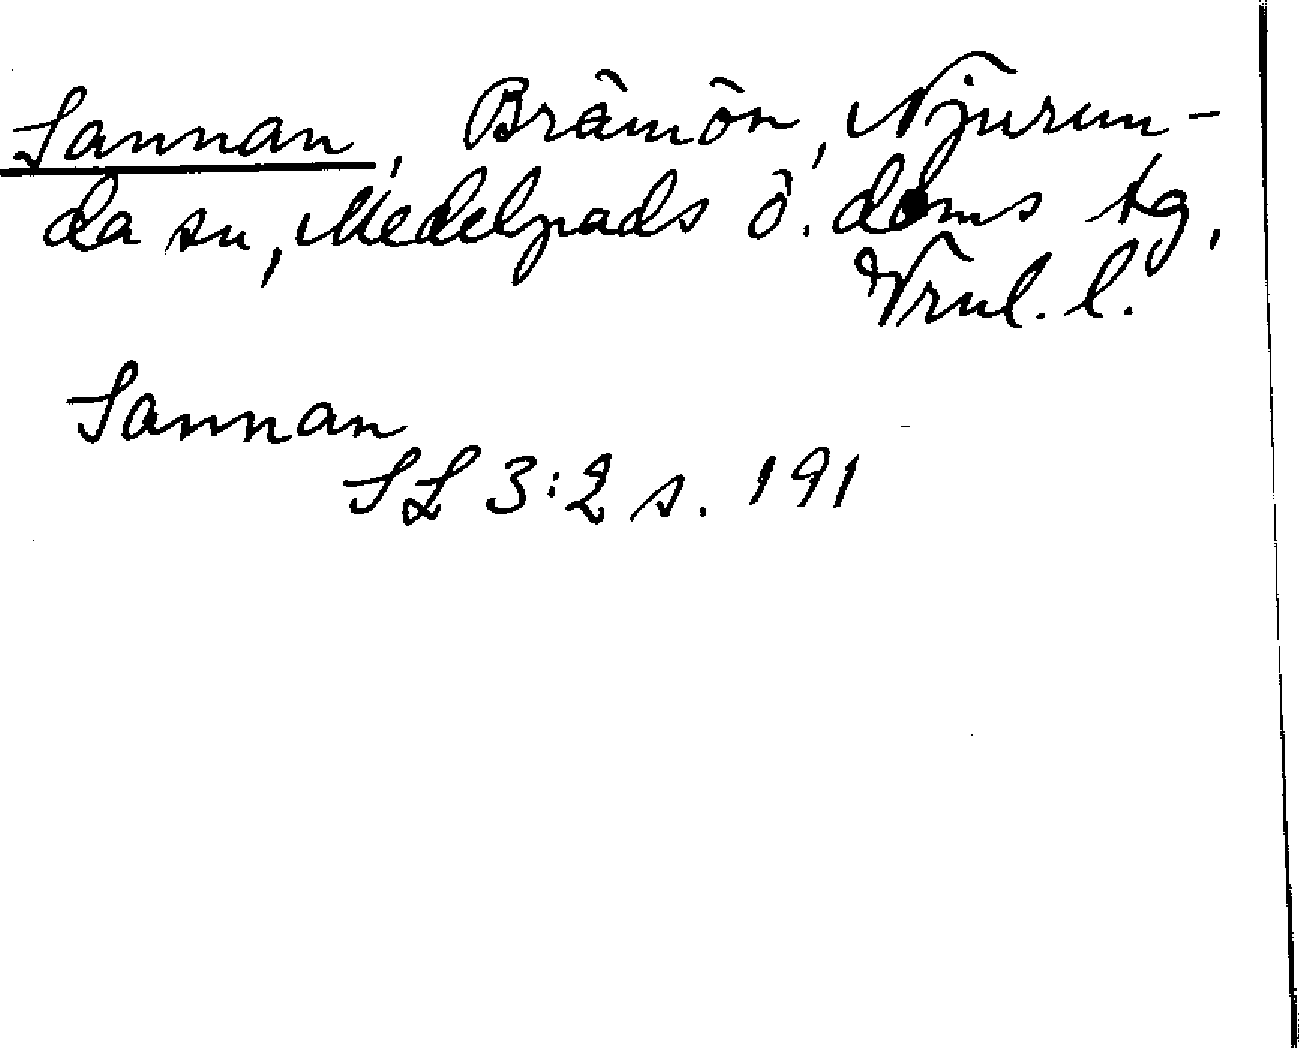 Sannan, Brämön, Njurun-
da sn, Medelpads ö. doms tg,
Vrnl. l.
Sannan
SL 3:2 s. 191